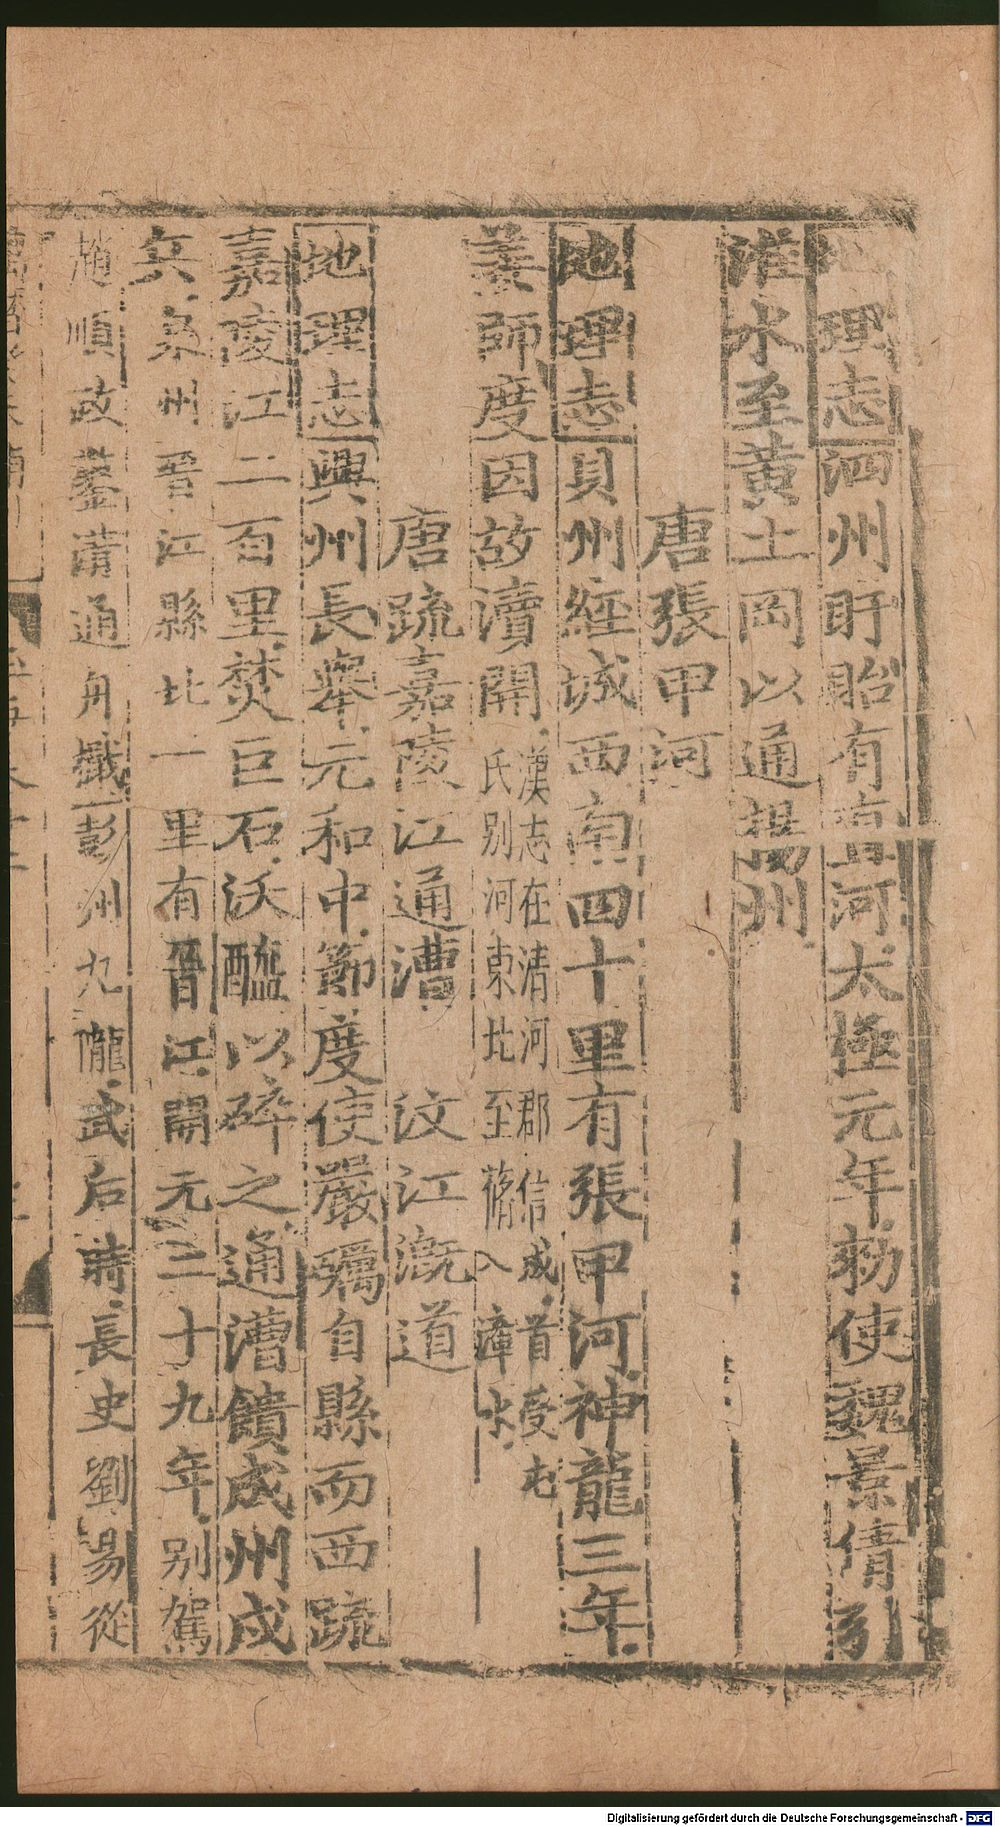 地理志泗州盱眙有直河太極元年勑使魏景倩引
淮水至黃土岡以通揚州
唐張甲河
地理志貝州經城西南四十里有張甲河神龍三年
姜師度因故瀆開漢志在清河郡信成首受屯
氏別河東北至蓨入漳水
唐疏嘉陵江通漕　汶江溉道
地理志興州長舉元和中節度使嚴礪自縣而西疏
嘉陵江二百里焚巨石沃醯以碎之通漕饋成州戍
兵泉州晉江縣北一里有晉江開元二十九年別駕
趙順政鑿溝通舟檝彭州九隴武后時長史劉易從
Digitalisierung gefördert durch die Deutsche Forschungsgemeinschaft - DFG